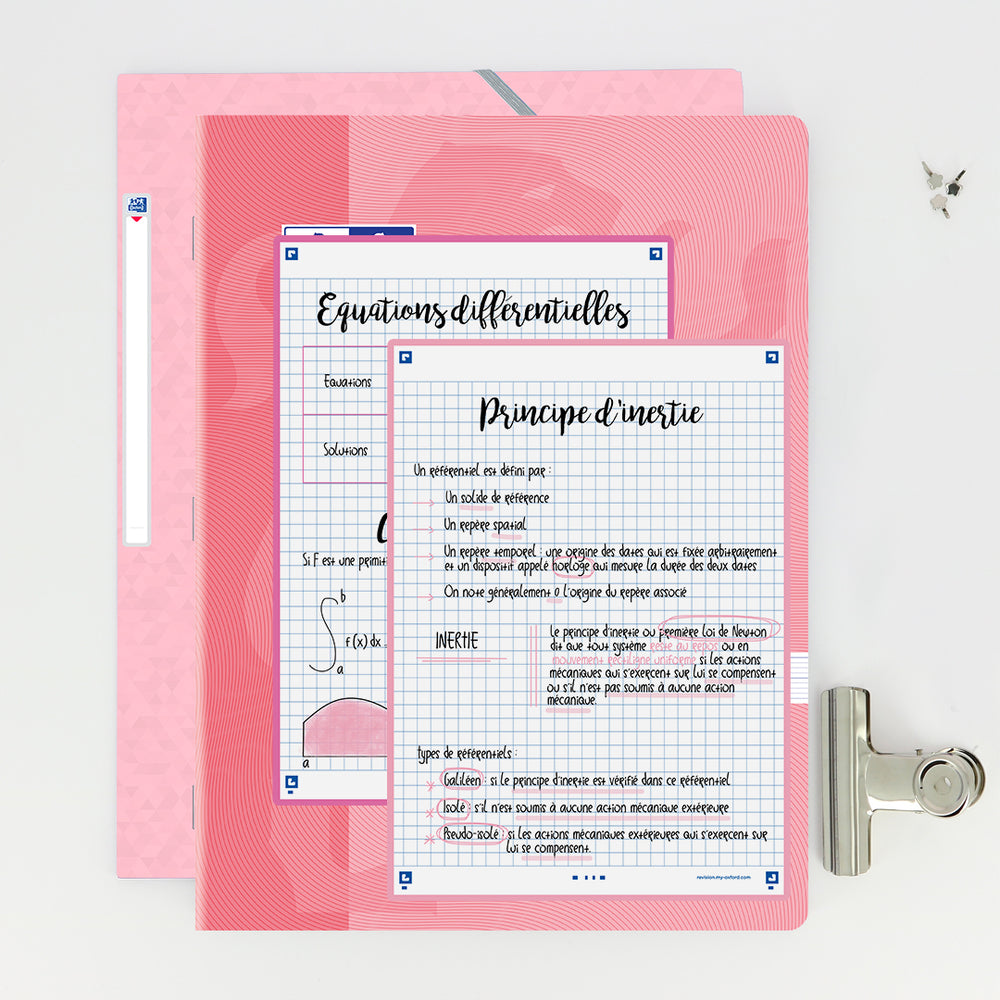 Equations différentielles
Equations
Solutions
Si F est une primiti
b
∫ f(x) dx
a
a
Principe d'inertie
Un référentiel est défini par :
→ Un solide de référence
→ Un repère spatial
→ Un repère temporel : une origine des dates qui est fixée arbitrairement
et un dispositif appelé horloge qui mesure la durée des deux dates
→ On note généralement O l'origine du repère associé
INERTIE
Le principe d'inertie ou première loi de Newton
dit que tout système reste au repos ou en
mouvement rectiligne uniforme si les actions
mécaniques qui s'exercent sur lui se compensent
ou s'il n'est pas soumis à aucune action
mécanique.
types de référentiels :
* Galiléen : si le principe d'inertie est vérifié dans ce référentiel
* Isolé : s'il n'est soumis à aucune action mécanique extérieure
* Pseudo-isolé : si les actions mécaniques extérieures qui s'exercent sur
lui se compensent.
revision.my-oxford.com